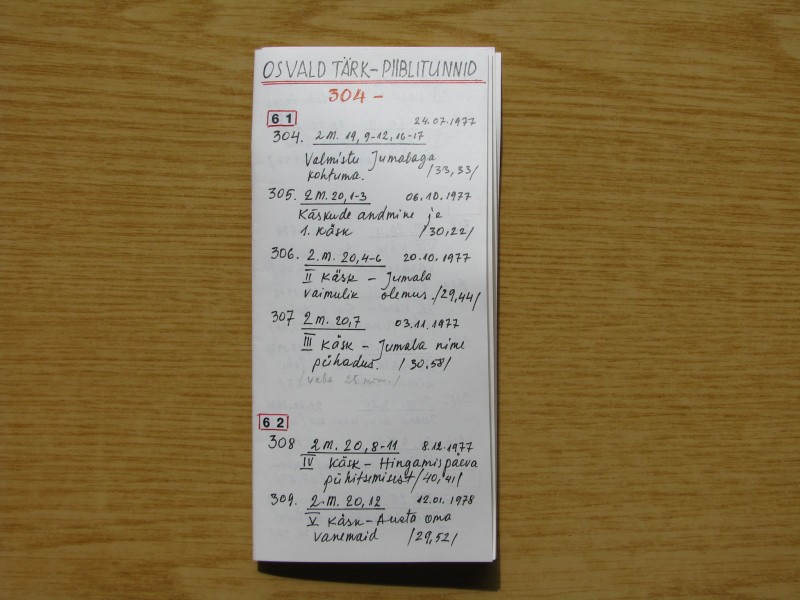 OSVALD TÄRK-PIIBLITUNNID
304-
61
24.07.1977
304. 2 M. 19, 9-12, 16-17
Valmistu Jumalaga
kohtuma. /33,33/
305. 2 M. 20, 1-3 06.10.1977
Käskude andmine ja
1. käsk /30,22/
306. 2. M. 20, 4-6 20.10.1977
II käsk - Jumala
vaimulik olemus. /29,44/
307 2 M. 20,7 03.11.1977
III käsk - Jumala nime
pühadus. /30,58/
/vaba 25 min./
62
308 2 M. 20, 8-11 8.12.1977
IV käsk - Hingamispäeva
pühitsemisest /40,41/
309. 2. M. 20, 12 12.01.1978
V käsk - Austa oma
vanemaid /29,52/